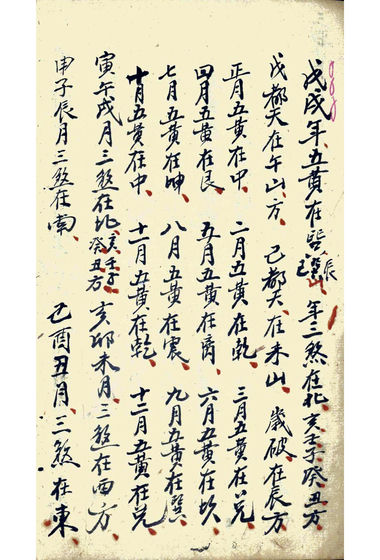 戊戌年、五黄在巽辰巽巳山 年三煞在北亥壬子癸丑方
戊都天在午山方 己都天在未山 歲破在辰方
正月五黄在中、二月五黄在乾 三月五黄在兑
四月五黄在艮 五月五黄在离 六月五黄在坎
七月五黄在坤 八月五黄在震 九月五黄在巽
十月五黄在中、十一月五黄在乾 十二月五黄在兑
寅午戌月三煞在北亥壬子癸丑方 亥卯未月三煞在西方
申子辰月三煞在南、 巳酉丑月三煞在東